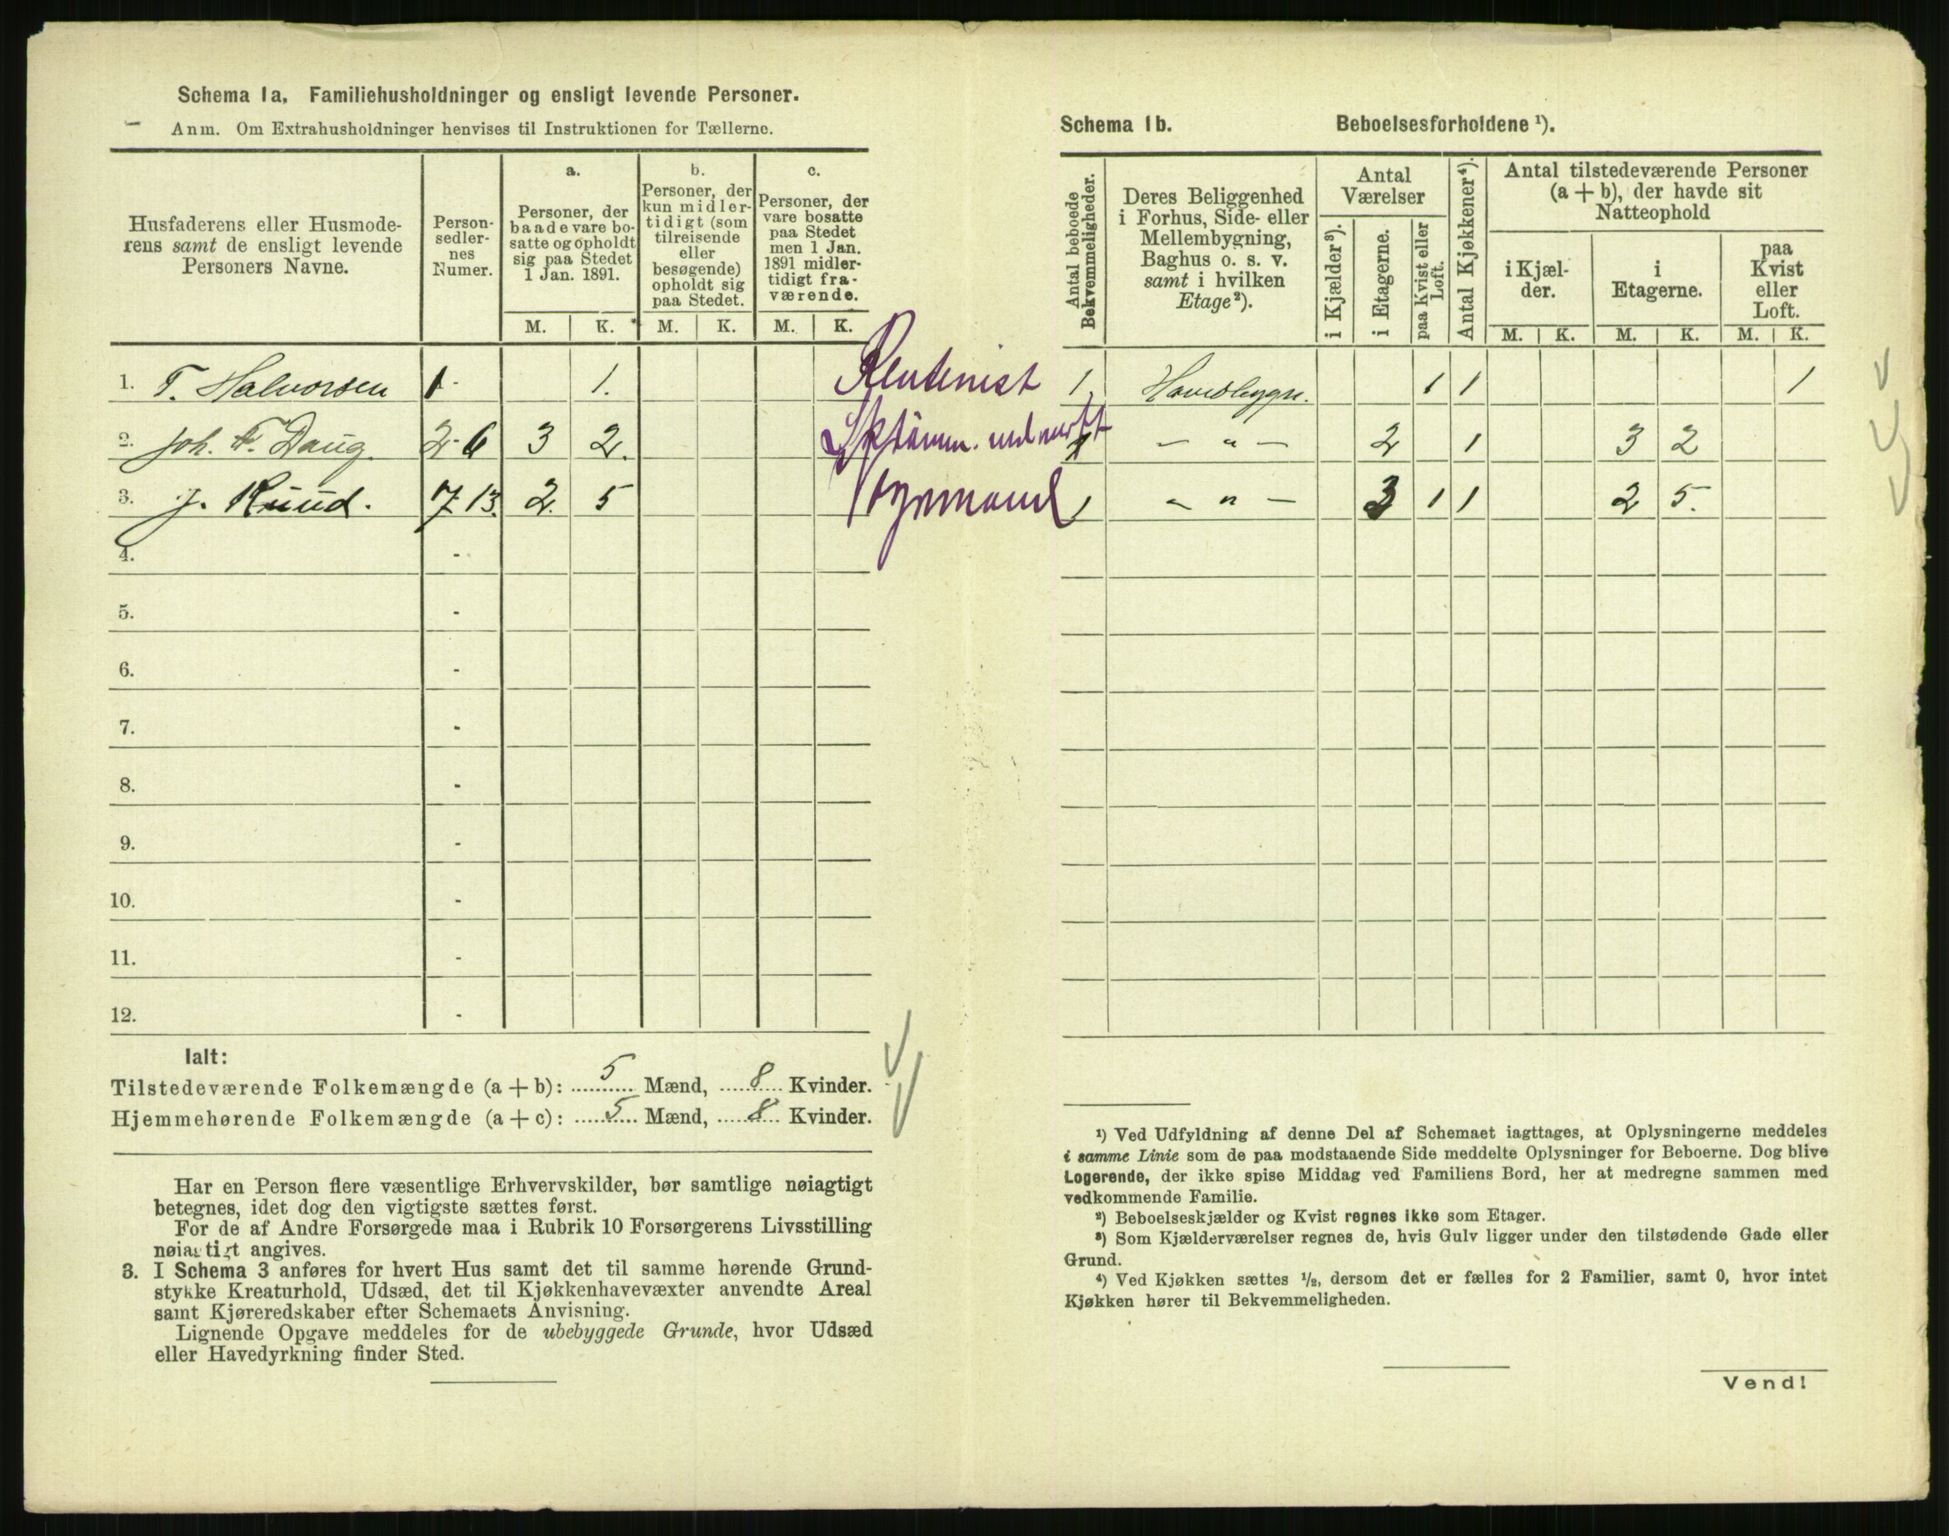 Schema 1a. Familiehusholdninger og ensligt levende Personer.
Anm. Om Extrahusholdninger henvises til Instruktionen for Tællerne.
Husfaderens eller Husmode-
rens samt de ensligt levende
Personers Navne.
Person-
sedler-
nes
Numer.
a.
Personer, der
baade vare bo-
satte og opholdt
sig paa Stedet
1 Jan. 1891.
b.
Personer, der
kun midler-
tidigt (som
tilreisende
eller
besøgende)
opholdt sig
paa Stedet.
c.
Personer, der
vare bosatte
paa Stedet
men 1 Jan.
1891 midler-
tidigt fra-
værende.
M. K. M. K. M. K.
1. T. Halvorsen 1 - 1. Rentenist
2. Joh. F. Daug. 2-6 3 2.
3. J. Ruud. 7-13. 2. 5
4. -
5. -
6. -
7. -
8. -
9. -
10. -
11. -
12. -
Ialt:
Tilstedeværende Folkemængde (a + b): 5 Mænd, 8 Kvinder.
Hjemmehørende Folkemængde (a + c): 5 Mænd, 8 Kvinder.
Har en Person flere væsentlige Erhvervskilder, bør samtlige nøiagtigt
betegnes, idet dog den vigtigste sættes først.
For de af Andre Forsørgede maa i Rubrik 10 Forsørgerens Livsstilling
nøiagtigt angives.
3. I Schema 3 anføres for hvert Hus samt det til samme hørende Grund-
stykke Kreaturhold, Udsæd, det til Kjøkkenhavevæxter anvendte Areal
samt Kjøreredskaber efter Schemaets Anvisning.
Lignende Opgave meddeles for de ubebyggede Grunde, hvor Udsæd
eller Havedyrkning finder Sted.
Schema 1b. Beboelsesforholdene ¹).
Antal beboede
Bekvemmeligheder.
Deres Beliggenhed
i Forhus, Side- eller
Mellembygning,
Baghus o. s. v.
samt i hvilken
Etage ²).
Antal
Værelser
i Kjælder ³).
i Etagerne.
paa Kvist eller
Loft.
Antal Kjøkkener ⁴).
Antal tilstedeværende Personer
(a + b), der havde sit
Natteophold
i Kjæl-
der.
i
Etagerne.
paa
Kvist
eller
Loft.
M. K. M. K. M. K.
1 Hovedbygn. 1 1 1
1 — " — 2 1 3 2
1 — " — 3 1 1 2 5.
¹) Ved Udfyldning af denne Del af Schemaet iagttages, at Oplysningerne meddeles
i samme Linie som de paa modstaaende Side meddelte Oplysninger for Beboerne. Dog blive
Logerende, der ikke spise Middag ved Familiens Bord, her at medregne sammen med
vedkommende Familie.
²) Beboelseskjælder og Kvist regnes ikke som Etager.
³) Som Kjælderværelser regnes de, hvis Gulv ligger under den tilstødende Gade eller
Grund.
⁴) Ved Kjøkken sættes ½, dersom det er fælles for 2 Familier, samt 0, hvor intet
Kjøkken hører til Bekvemmeligheden.
Vend!